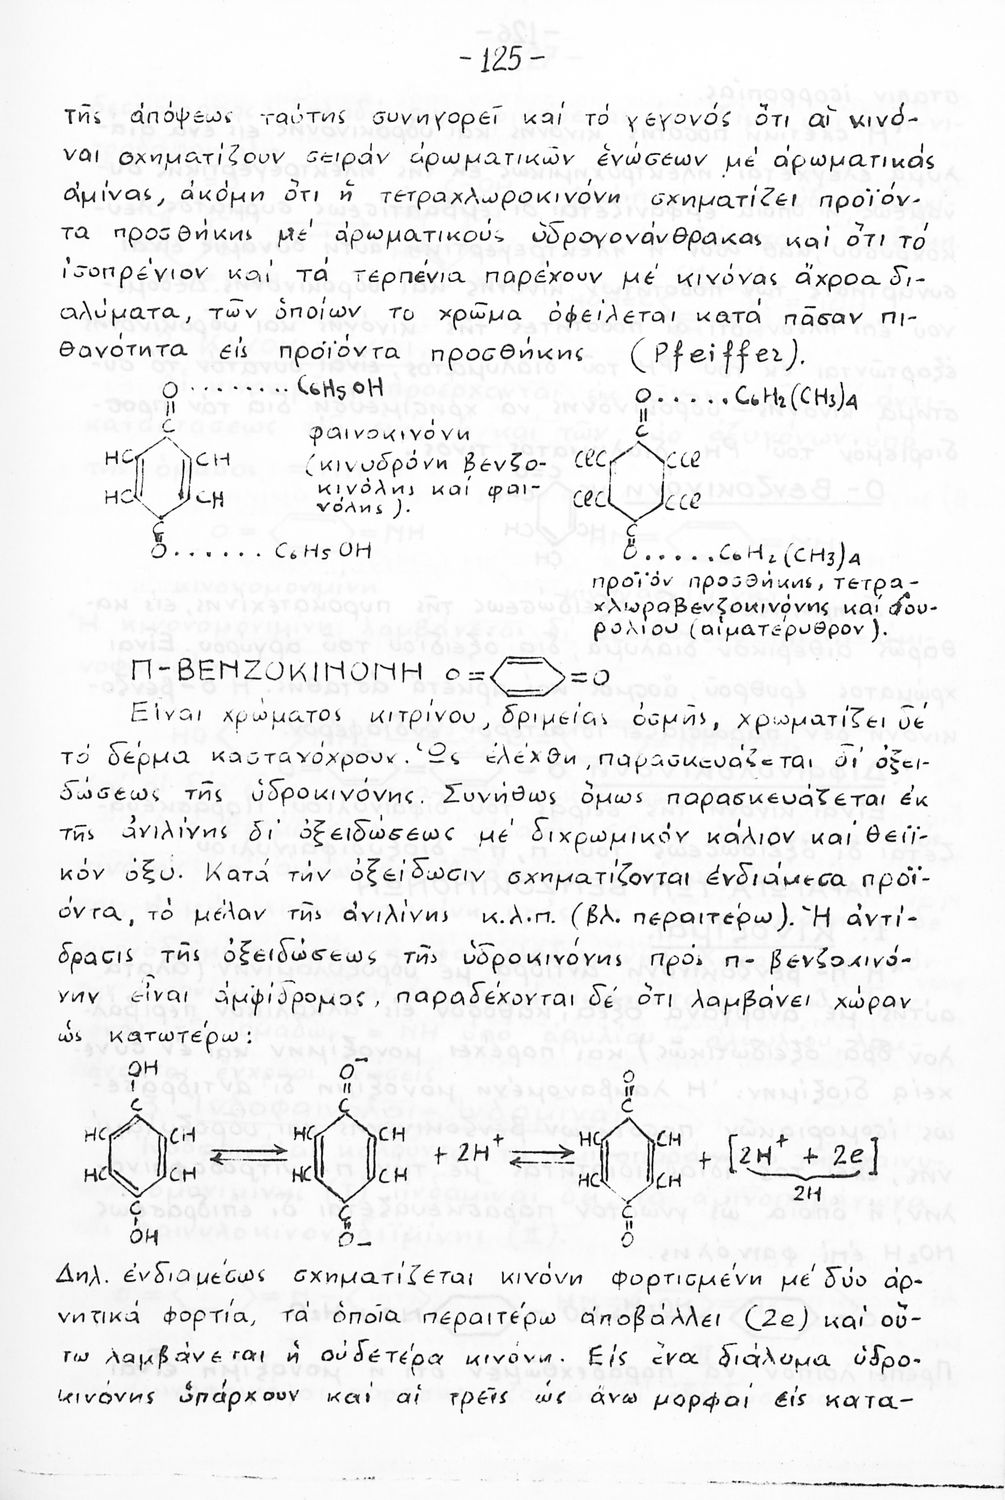 -125-
τῆς ἀπόψεως ταύτης συνηγορεῖ καί τό γεγονός ὅτι αἱ κινό-
ναι σχηματίζουν σειράν ἀρωματικῶν ἑνώσεων μέ ἀρωματικάς
ἀμίνας, ἀκόμη ὅτι ἡ τετραχλωροκινόνη σχηματίζει προϊόν-
τα προσθήκης μέ ἀρωματικούς ὑδρογονάνθρακας καί ὅτι τό
ἰσοπρένιον καί τά τερπένια παρέχουν μέ κινόνας ἄχροα δι-
αλύματα, τῶν ὁποίων το χρῶμα ὀφείλεται κατά πᾶσαν πι-
θανότητα εἰς προϊόντα προσθήκης (Pfeiffer).
O ........ C6H5OH
O ..... C6H2(CH3)4
C
C
φαινοκινόνη
(κινυδρόνη βενζο-
κινόλης καί φαι-
νόλης).
HC CH
HC CH
ClC CCl
ClC CCl
C
C
O ...... C6H5OH
O ..... C6H2(CH3)4
προϊόν προσθήκης, τετρα-
χλωραβενζοκινόνης καί δου-
ρολίου (αἱματέρυθρον).
Π-ΒΕΝΖΟΚΙΝΟΝΗ O= =O
Εἶναι χρώματος κιτρίνου, δριμείας ὀσμῆς, χρωματίζει δέ
τό δέρμα καστανόχρουν. Ὡς ἐλέχθη, παρασκευάζεται δι' ὀξει-
δώσεως τῆς ὑδροκινόνης. Συνήθως ὅμως παρασκευάζεται ἐκ
τῆς ἀνιλίνης δι' ὀξειδώσεως μέ διχρωμικόν κάλιον και θειϊ-
κόν ὀξύ. Κατά τήν ὀξείδωσιν σχηματίζονται ἐνδιάμεσα προϊ-
όντα, τό μέλαν τῆς ἀνιλίνης κ.λ.π. (βλ. περαιτέρω). Ἡ ἀντί-
δρασις τῆς ὀξειδώσεως τῆς ὑδροκινόνης πρός π- βενζοκινό-
νην εἶναι ἀμφίδρομος, παραδέχονται δέ ὅτι λαμβάνει χώραν
ὡς κατωτέρω:
OH O⁻ O
C C C
HC CH HC CH + 2H⁺ HC CH + [2H⁺ + 2e]
HC CH HC CH HC CH 2H
C C C
OH O- O
Δηλ. ἐνδιαμέσως σχηματίζεται κινόνη φορτισμένη μέ δύο ἀρ-
νητικά φορτία, τά ὁποῖα περαιτέρω ἀποβάλλει (2e) καί οὕ-
τω λαμβάνεται ἡ οὐδετέρα κινόνη. Εἰς ἕνα διάλυμα ὑδρο-
κινόνης ὑπάρχουν καί αἱ τρεῖς ὡς ἄνω μορφαί εἰς κατα-